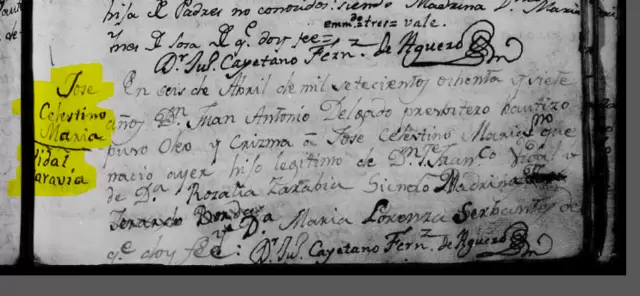 hija d Padres no conocidos: siendo Madrina D. Maria
emm.do tres= vale.
y mes d sora d q.e doy fee=
D.r Ju.l Cayetano Fern.z de Aguero
Jose
Celestino
Maria
Vidal
Saravia
En seis de Abril de mil setecientos ochenta y siete
años D.n Juan Antonio Delgado presbitero bautizo
puso Oleo y Crizma â Jose Celestino Maria que
nacio ayer hijo legitimo de D.n Fran.co Vidal y
de D.a Rozalia Zarabia Siendo Madrina
D.a Maria Lorenza
q.e doy fee: D.r Ju.l Cayetano Fern.z de Aguero